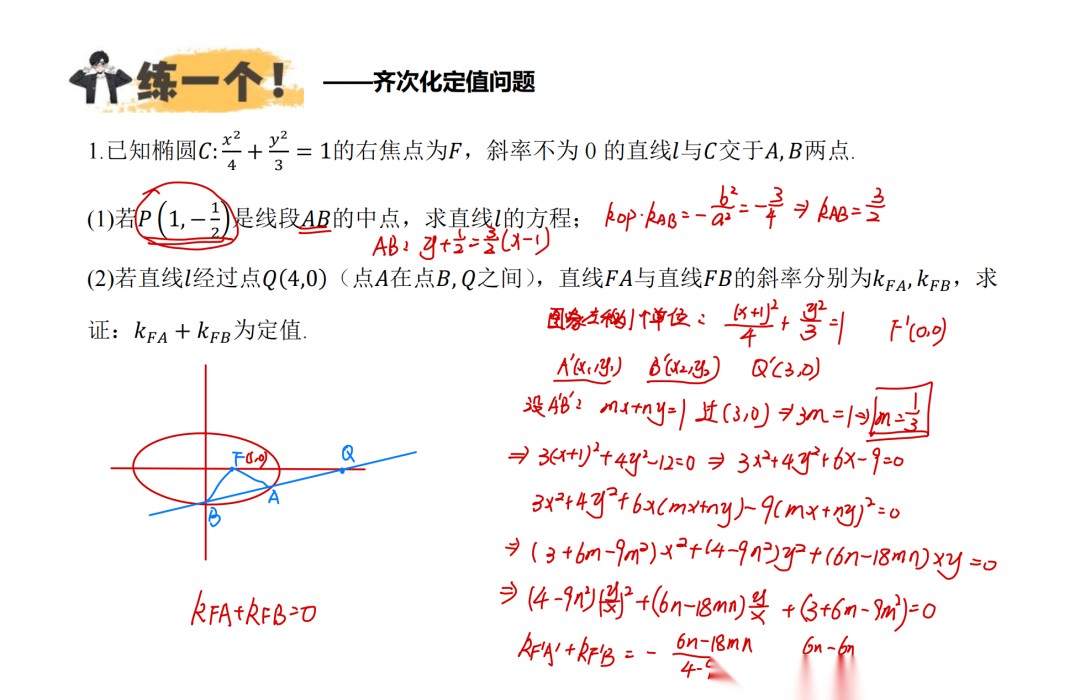 练一个！ ——齐次化定值问题
1.已知椭圆C: x²/4 + y²/3 = 1的右焦点为F，斜率不为 0 的直线l与C交于A, B两点.
(1)若P(1, −1/2)是线段AB的中点，求直线l的方程；
k_OP·k_AB = −b²/a² = −3/4 ⇒ k_AB = 3/2
AB: y+1/2=3/2(x−1)
(2)若直线l经过点Q(4,0)（点A在点B, Q之间），直线FA与直线FB的斜率分别为k_FA, k_FB，求
证：k_FA + k_FB为定值.
图象左移1个单位： (x+1)²/4 + y²/3 =1 F'(0,0)
A'(x₁,y₁) B'(x₂,y₂) Q'(3,0)
设A'B'： mx+ny=1 过(3,0) ⇒ 3m=1 ⇒ m=1/3
⇒ 3(x+1)²+4y²−12=0 ⇒ 3x²+4y²+6x−9=0
3x²+4y²+6x(mx+ny)−9(mx+ny)²=0
⇒ (3+6m−9m²)x²+(4−9n²)y²+(6n−18mn)xy=0
⇒ (4−9n²)(y/x)²+(6n−18mn)y/x+(3+6m−9m²)=0
k_F'A'+k_F'B = − (6n−18mn)/(4− 6n−6n
F(1,0)
Q
A
B
k_FA+k_FB=0